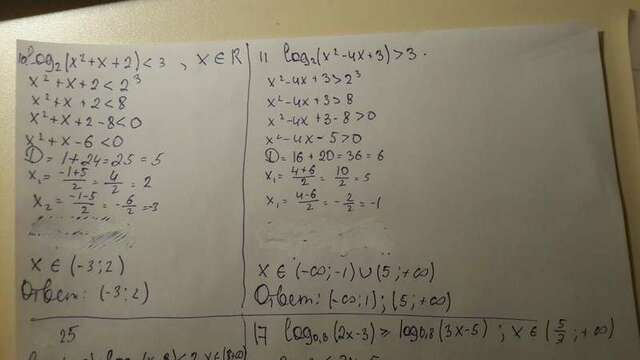 10 log₂(x²+x+2)<3 , x∈R
x²+x+2<2³
x²+x+2<8
x²+x+2-8<0
x²+x-6<0
D=1+24=25=5
x₁= (-1+5)/2 = 4/2 = 2
x₂= (-1-5)/2 = -6/2 = -3
x∈(-3;2)
Ответ: (-3;2)
11 log₂(x²-4x+3)>3.
x²-4x+3>2³
x²-4x+3>8
x²-4x+3-8>0
x²-4x-5>0
D=16+20=36=6
x₁= (4+6)/2 = 10/2 = 5
x₁= (4-6)/2 = -2/2 = -1
x∈(-∞;-1)∪(5;+∞)
Ответ: (-∞;1);(5;+∞)
25
17 log₀,₈(2x-3)≥log₀,₈(3x-5) ; x∈(5/3;+∞)